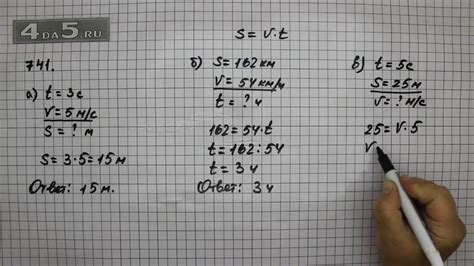 4DA5.RU
S = V · t
741.
а) t = 3с
V = 5 м/с
S = ? м
S = 3·5 = 15 м
Ответ: 15 м.
б) S = 162 км
V = 54 км/ч
t = ? ч
162 = 54·t
t = 162 : 54
t = 3 ч
Ответ: 3 ч
в) t = 5с
S = 25 м
V = ? м/с
25 = V·5
V